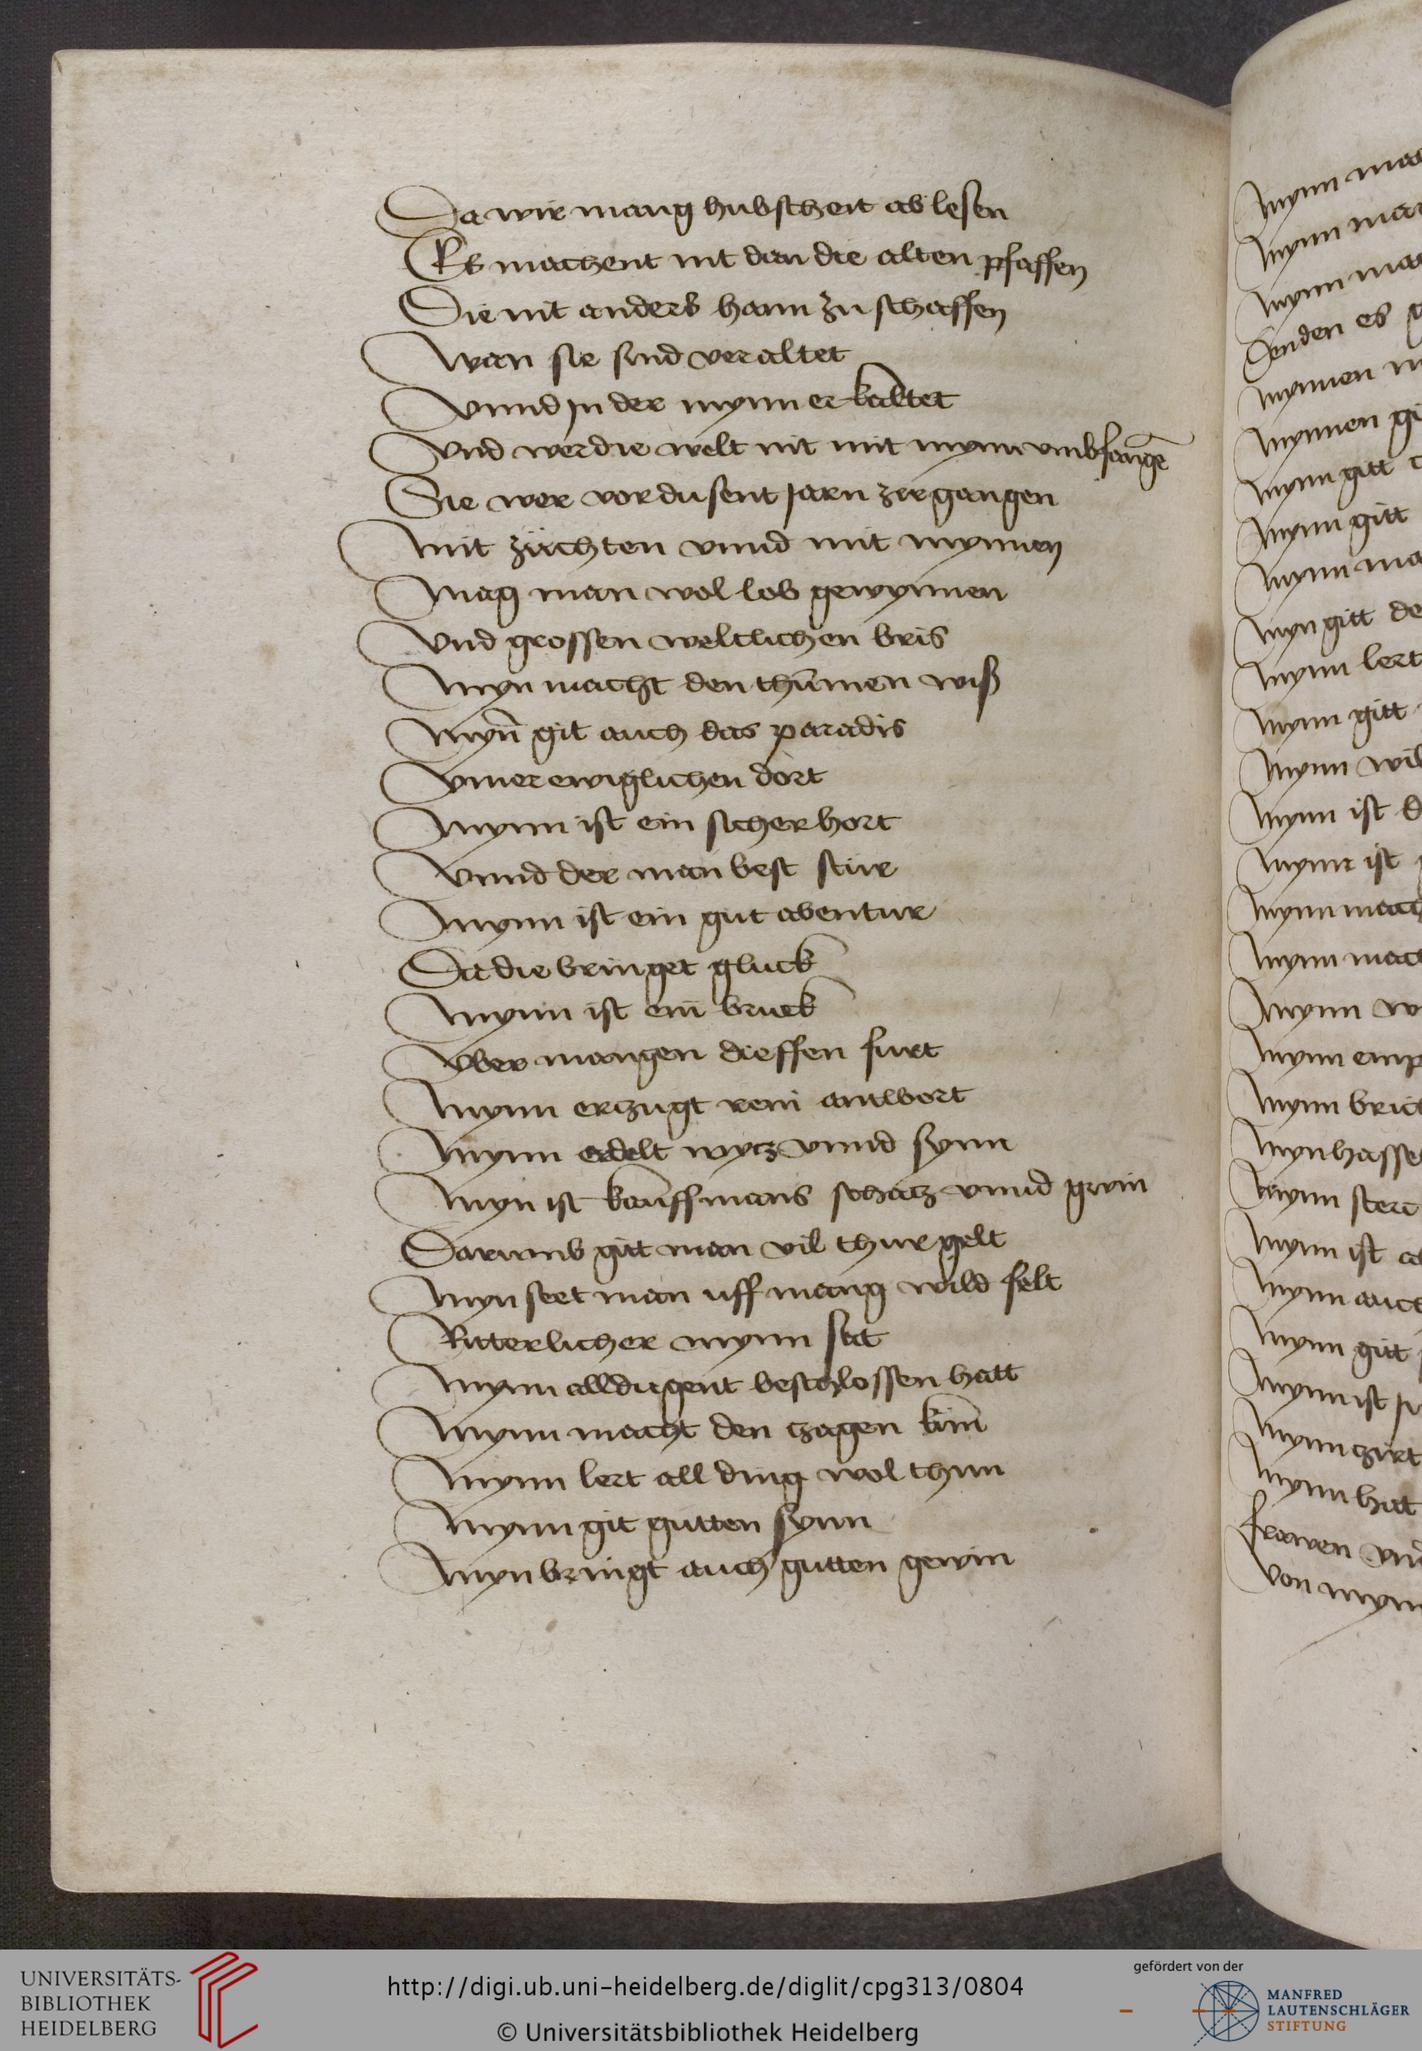 Da wir mang hubscheit ab lesen
Es machent nit dan die alten pfaffen
Die nit anders hann zu schaffen
Wan sie sind veraltet
Vnnd jn der mynn erkaltet
Vnd wer die welt nit mit mynn vmbfangē
Sie wer vor dusent jarn zergangen
Mit züchten vnnd mit mynnen
Mag man wol lob gewynnen
Vnd grossen weltlichen bris
Myn macht den thūmen wiß
Myn̄ git auch das paradis
Ymer ewiglichen dort
Mynn ist ein sicher hort
Vnnd der man best stür
Mynn ist ein gut abentur
Da die bringet gluck
Mynn ist ein bruck
Vber mangen dieffen furt
Mynn erzugt rein antwort
Mynn edelt wytz vnnd synn
Myn ist kauffmans schatz vnnd gwin
Darumb gitt man vil thur gelt
Myn seet man uff mang wild felt
Ritterlicher mynn sat
Mynn all dugent beschlossen hatt
Mynn macht den zagen kün
Mynn lert all ding wol thun
Mynn git gutten synn
Myn bringt auch gutten gewin
Mynn
Mynn
Mynn
Senden es
Mynnen
Mynnen
Mynn gitt
Mynn gitt
Mynn
Myn gitt
Mynn lert
Mynn gitt
Mynn
Mynn ist
Mynn ist
Mynn
Mynn
Mynn
Mynn
Mynn
Myn
Mynn
Mynn ist
Mynn
Mynn gitt
Mynn ist
Mynn
Mynn
frawen
Von
UNIVERSITÄTS-
BIBLIOTHEK
HEIDELBERG
http://digi.ub.uni-heidelberg.de/diglit/cpg313/0804
© Universitätsbibliothek Heidelberg
gefördert von der
MANFRED
LAUTENSCHLÄGER
STIFTUNG